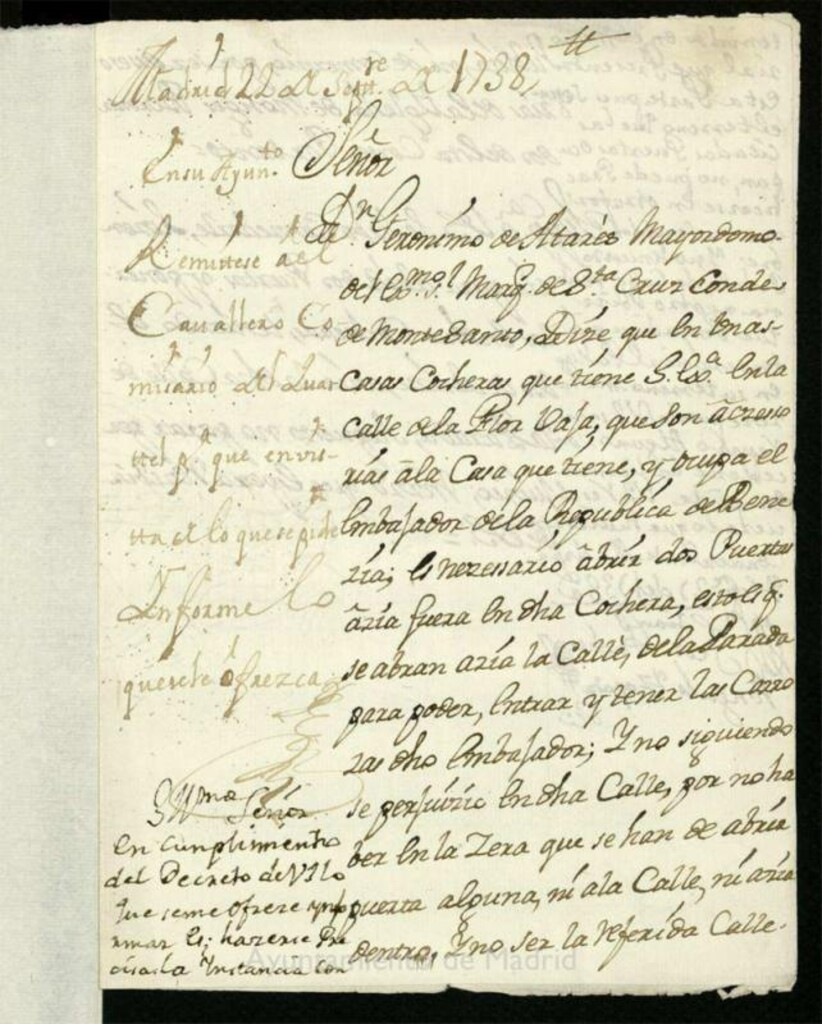 Madrid 22 de Sept.re de 1738
En su Ayun.to
Remittese a el
Cavallero Co
misario del Quar
ttel p.a que en vis-
tta de lo que se pide
Informe lo
que se le ofrezca
Señor
D.n Geronimo de Atares Mayordomo
del Ex.mo S.r Marq. de S.ta Cruz Conde
de Montesanto, Dize que en unas
Casas Cocheras que tiene S. Ex.a en la
calle de la Flor Vaja, que son açceso
rias â la Casa que tiene, y ocupa el
Embajador de la Republica de Bene
zia; es nezessario âbrir dos Puertas
âzia fuera en dha Cochera, esto es q.
se abran azia la Calle, de la Parada
para poder, entrar y tener las Carro
zas dho Embajador; Y no siguiendo
se perjuizio en dha Calle, por no ha
ber en la Zera que se han de abrir
puerta alguna, ni a la Calle, ni azia
dentro, Y no ser la referida Calle
Yll.mo Señor
En Cumplimiento
del Decreto de V.I. lo
que se me ofreze ynfo
rmar es; hazerse Pre
cisa la Instancia con
Ayuntamiento de Madrid